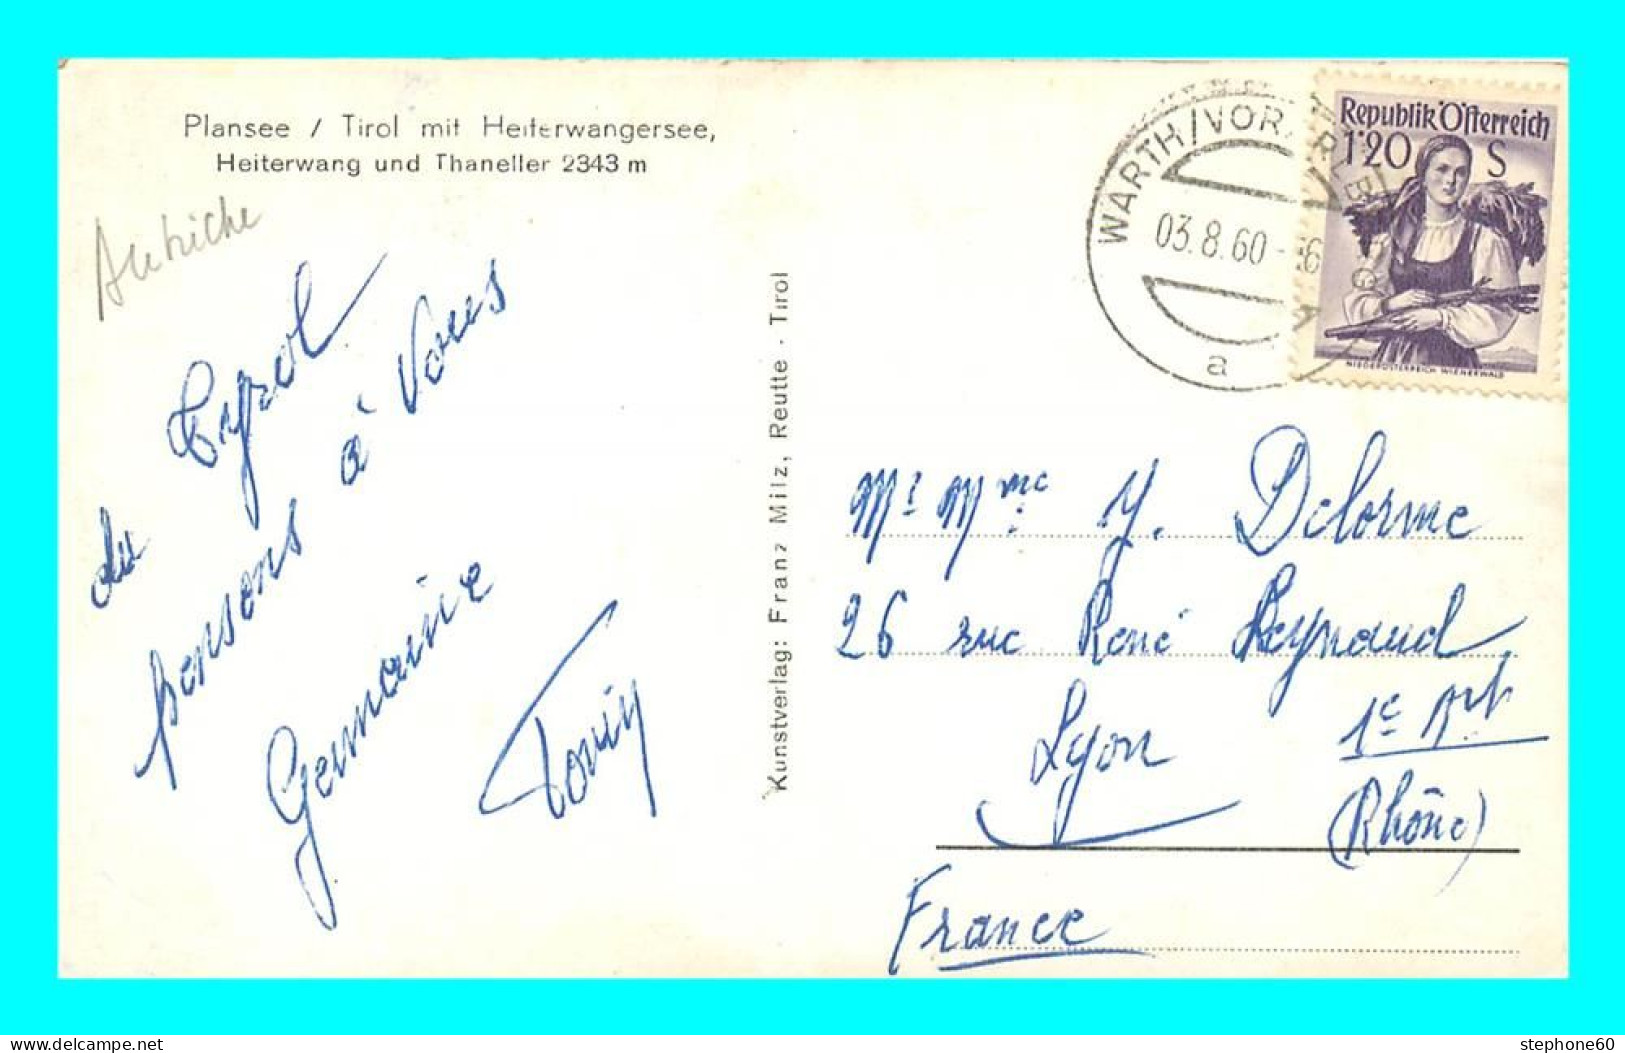 Plansee / Tirol mit Heiterwangersee,
Heiterwang und Thaneller 2343 m
Autriche
du Tyrol
pensons à Vous
Germaine
Tony
Kunstverlag: Franz Milz, Reutte - Tirol
WARTH/VORARLBG
03.8.60
a
Republik Österreich
1.20 S
NIEDERÖSTERREICH WIENERWALD
Mr Mme Y. Delorme
26 rue René Leynaud
Lyon 1e Art
(Rhône)
France
stephone60